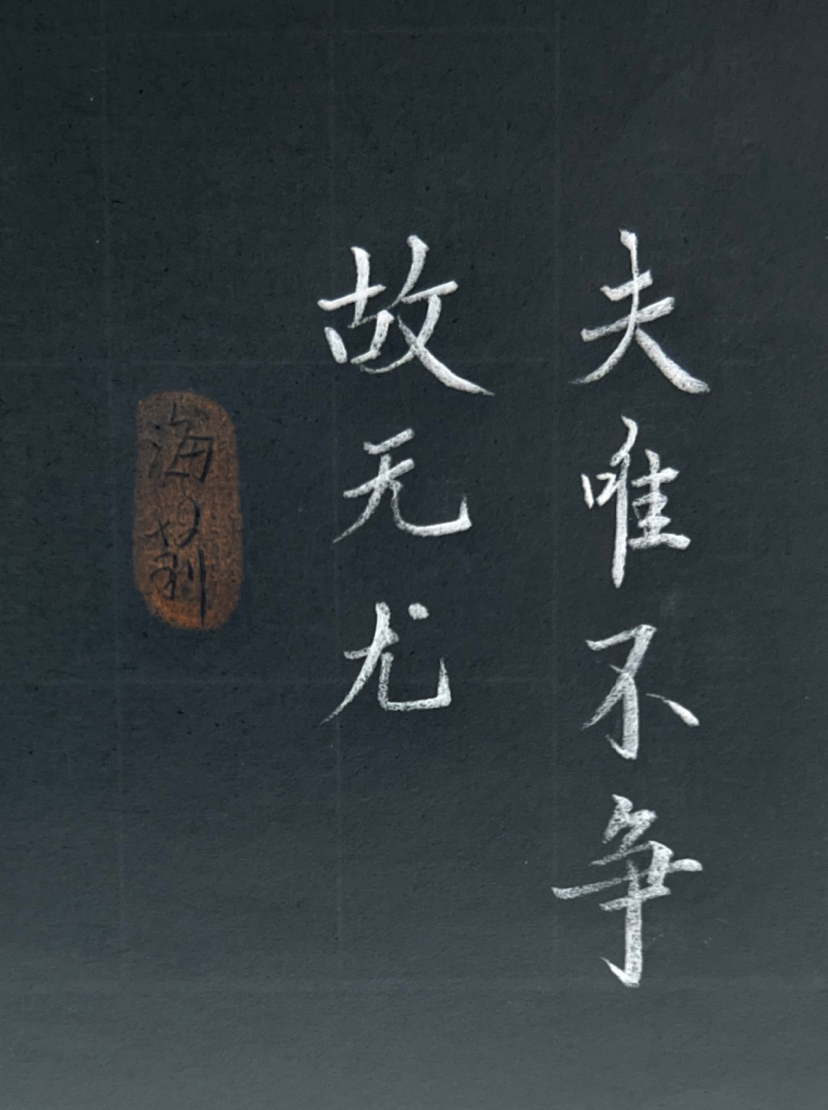 夫唯不争
故无尤
海